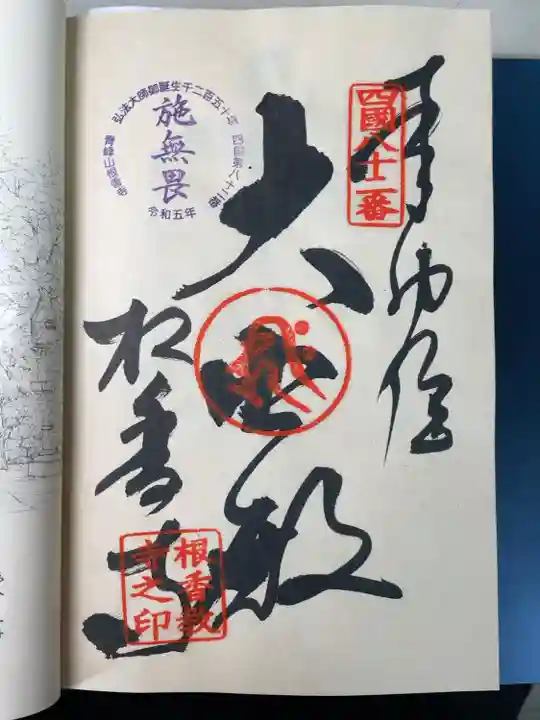 四國八十二番
奉納経
大悲殿
根香寺
根香教
寺之印
弘法大師御誕生千二百五十年
四国第八十二番
青峰山根香寺
施無畏
令和五年